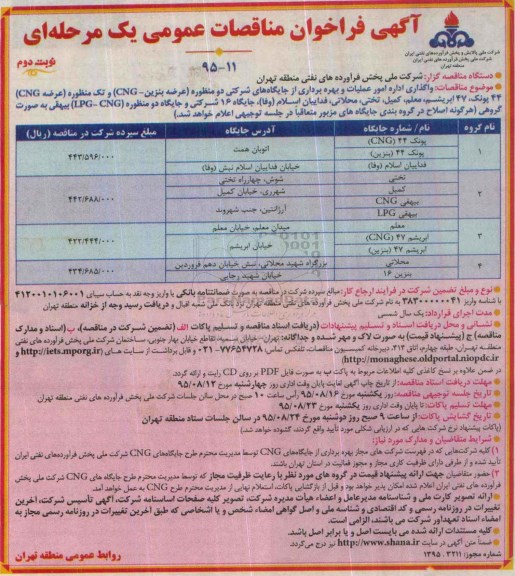 آگهی فراخوان مناقصات عمومی یک مرحله‌ای
۹۵-۱۱
نوبت دوم
شرکت ملی پالایش و پخش فرآورده‌های نفتی ایران
شرکت ملی پخش فرآورده های نفتی ایران
منطقه تهران
دستگاه مناقصه گزار: شرکت ملی پخش فرآورده های نفتی منطقه تهران
موضوع مناقصات: واگذاری اداره امور عملیات و بهره برداری از جایگاه‌های شرکتی دو منظوره (عرضه بنزین- CNG) و تک منظوره (عرضه CNG)
۴۴ پونک، ۴۷ ابریشم، معلم، کمیل، تختی، محلاتی، فداییان اسلام (وفا)، جایگاه ۱۶ شرکتی و جایگاه دو منظوره (LPG- CNG) بیهقی به صورت
گروهی (هرگونه اصلاح در گروه بندی جایگاه های مزبور متعاقباً در جلسه توجیهی اعلام خواهد شد.)
نام گروه
نام/ شماره جایگاه
آدرس جایگاه
مبلغ سپرده شرکت در مناقصه (ریال)
۱
پونک ۴۴ (CNG)
پونک ۴۴ (بنزین)
اتوبان همت
فداییان اسلام (وفا)
خیابان فداییان اسلام نبش (وفا)
۴۴۳/۵۹۶/۰۰۰
۲
تختی
شوش، چهارراه تختی
کمیل
شهرری، خیابان کمیل
بیهقی CNG
بیهقی LPG
آرژانتین، جنب شهروند
۴۴۲/۶۸۸/۰۰۰
۳
معلم
میدان معلم، خیابان معلم
ابریشم ۴۷ (CNG)
ابریشم ۴۷ (بنزین)
خیابان ابریشم
۴۲۲/۴۴۴/۰۰۰
۴
محلاتی
بزرگراه شهید محلاتی، نبش خیابان دهم فروردین
بنزین ۱۶
خیابان شهید رجایی
۴۲۴/۶۸۵/۰۰۰
نوع و مبلغ تضمین شرکت در فرایند ارجاع کار: مبالغ سپرده شرکت در مناقصه به صورت ضمانتنامه بانکی یا واریز وجه نقد به حساب سیبای ۴۱۲۰۰۱۰۱۰۶۰۰۱
با شناسه واریز ۳۸۳۰۰۰۰۰۰۴۱ به نام شرکت ملی پخش فرآورده های نفتی منطقه تهران نزد بانک ملی شعبه اقبال و دریافت رسید وجه از خزانه منطقه تهران
مدت اجرای قرارداد: یک سال شمسی
نشانی و محل دریافت اسناد و تسلیم پیشنهادات (دریافت اسناد مناقصه و تسلیم پاکات الف (تضمین شرکت در مناقصه)، ب (اسناد و مدارک
مناقصه) ج (پیشنهاد قیمت) به صورت لاک و مهر شده و جداگانه: تهران، خیابان سمیه، تقاطع خیابان بهار جنوبی، ساختمان شرکت ملی پخش فرآورده های نفتی
منطقه تهران، طبقه چهارم، اتاق ۳۱۲، دبیرخانه کمیسیون مناقصات، تلفکس تماس: ۷۷۶۵۴۷۲۸-۰۲۱ و قابل برداشت از سایت های (http://iets.mporg.ir و
http://monaghese.oldportal.niopdc.ir)
در ضمن علاوه بر نسخ کاغذی کلیه اطلاعات مربوط به پاکت ب به صورت فایل PDF بر روی CD رایت و ارائه گردد.
مهلت دریافت اسناد مناقصه: از تاریخ چاپ آگهی لغایت پایان وقت اداری روز چهارشنبه مورخ ۹۵/۰۸/۱۲
تاریخ جلسه توجیهی مناقصه: روز یکشنبه مورخ ۹۵/۰۸/۱۶ رأس ساعت ۱۰ صبح در محل سالن جلسات شرکت ملی پخش فرآورده های نفتی منطقه تهران
مهلت تسلیم پاکات: تا پایان وقت اداری روز یکشنبه مورخ ۹۵/۰۸/۲۳
تاریخ گشایش پاکات: از ساعت ۹ صبح روز دوشنبه مورخ ۹۵/۰۸/۲۴ در سالن جلسات ستاد منطقه تهران
(پاکات پیشنهاد نرخ شرکت هایی که در ارزیابی شکلی مورد تأیید واقع گردند، گشوده خواهد شد.)
شرایط متقاضیان و مدارک مورد نیاز:
۱) کلیه شرکت‌هایی که در فهرست شرکت های مجاز بهره برداری از جایگاه‌های CNG توسط مدیریت محترم طرح جایگاه‌های CNG شرکت ملی پخش فرآورده‌های نفتی ایران
تأیید شده و از طرفی دارای ظرفیت کاری مجاز و مجوز فعالیت در استان تهران باشند.
۲) حضور متقاضیان جهت ارائه پیشنهاد قیمت در گروه های مورد نظر با رعایت ظرفیت مجاز که توسط مدیریت محترم طرح جایگاه های CNG شرکت ملی پخش
فرآورده های نفتی ایران اعلام شده امکان پذیر خواهد بود و قبل از بازگشایی پاکات، استعلام نهایی از مدیریت محترم طرح CNG به عمل خواهد آمد.
ارائه تصویر کارت ملی و شناسنامه مدیرعامل و اعضاء هیأت مدیره شرکت، تصویر کلیه صفحات اساسنامه شرکت، آگهی تأسیس شرکت، آخرین
تغییرات در روزنامه رسمی و کد اقتصادی و شناسه ملی و اصل گواهی امضاء شخص و یا اشخاصی که طبق آخرین تغییرات در روزنامه رسمی مجاز به
امضاء اسناد تعهدآور شرکت می باشند، الزامی است.
کلیه مستندات ارائه شده می بایست اصل و یا برابر اصل باشد.
ضمناً متن آگهی در سایت http://www.shana.ir نیز درج می‌گردد.
شماره مجوز: ۳۲۱۱ . ۱۳۹۵
روابط عمومی منطقه تهران